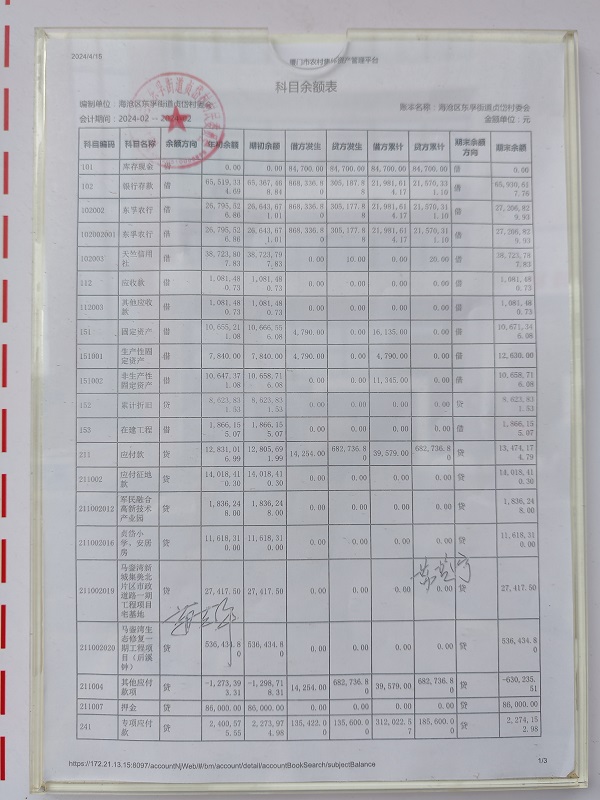 2024/4/15 厦门市农村集体资产管理平台
科目余额表
编制单位：海沧区东孚街道贞岱村委会 账本名称：海沧区东孚街道贞岱村委会
会计期间：2024-02 -- 2024-02 金额单位：元
科目编码 科目名称 余额方向 年初余额 期初余额 借方发生 贷方发生 借方累计 贷方累计 期末余额方向 期末余额
101 库存现金 借 0.00 0.00 84,700.00 84,700.00 84,700.00 84,700.00 借 0.00
102 银行存款 借 65,519,334.69 65,367,468.84 868,336.80 305,187.88 21,981,614.17 21,570,331.10 借 65,930,617.76
102002 东孚农行 借 26,795,526.86 26,643,671.01 868,336.80 305,177.88 21,981,614.17 21,570,311.10 借 27,206,829.93
102002001 东孚农行 借 26,795,526.86 26,643,671.01 868,336.80 305,177.88 21,981,614.17 21,570,311.10 借 27,206,829.93
102003 天竺信用社 借 38,723,807.83 38,723,797.83 0.00 10.00 0.00 20.00 借 38,723,787.83
112 应收款 借 1,081,480.73 1,081,480.73 0.00 0.00 0.00 0.00 借 1,081,480.73
112003 其他应收款 借 1,081,480.73 1,081,480.73 0.00 0.00 0.00 0.00 借 1,081,480.73
151 固定资产 借 10,655,211.08 10,666,556.08 4,790.00 0.00 16,135.00 0.00 借 10,671,346.08
151001 生产性固定资产 借 7,840.00 7,840.00 4,790.00 0.00 4,790.00 0.00 借 12,630.00
151002 非生产性固定资产 借 10,647,371.08 10,658,716.08 0.00 0.00 11,345.00 0.00 借 10,658,716.08
152 累计折旧 贷 8,623,831.53 8,623,831.53 0.00 0.00 0.00 0.00 贷 8,623,831.53
153 在建工程 借 1,866,155.07 1,866,155.07 0.00 0.00 0.00 0.00 借 1,866,155.07
211 应付款 贷 12,831,016.99 12,805,691.99 14,254.00 682,736.80 39,579.00 682,736.80 贷 13,474,174.79
211002 应付征地款 贷 14,018,410.30 14,018,410.30 0.00 0.00 0.00 0.00 贷 14,018,410.30
211002012 军民融合高新技术产业园 贷 1,836,248.00 1,836,248.00 0.00 0.00 0.00 0.00 贷 1,836,248.00
211002016 贞岱小学、安居房 贷 11,618,310.00 11,618,310.00 0.00 0.00 0.00 0.00 贷 11,618,310.00
211002019 马銮湾新城集美北片区市政道路一期工程项目宅基地 贷 27,417.50 27,417.50 0.00 0.00 0.00 0.00 贷 27,417.50
211002020 马銮湾生态修复一期工程项目（后溪钟） 贷 536,434.80 536,434.80 0.00 0.00 0.00 0.00 贷 536,434.80
211004 其他应付款项 贷 -1,273,393.31 -1,298,718.31 14,254.00 682,736.80 39,579.00 682,736.80 贷 -630,235.51
211007 押金 贷 86,000.00 86,000.00 0.00 0.00 0.00 0.00 贷 86,000.00
241 专项应付款 贷 2,400,575.55 2,273,974.98 135,422.00 135,600.00 312,022.57 185,600.00 贷 2,274,152.98
https://172.21.13.15:8097/accountNjWeb/#/bm/account/detail/accountBookSearch/subjectBalance 1/3